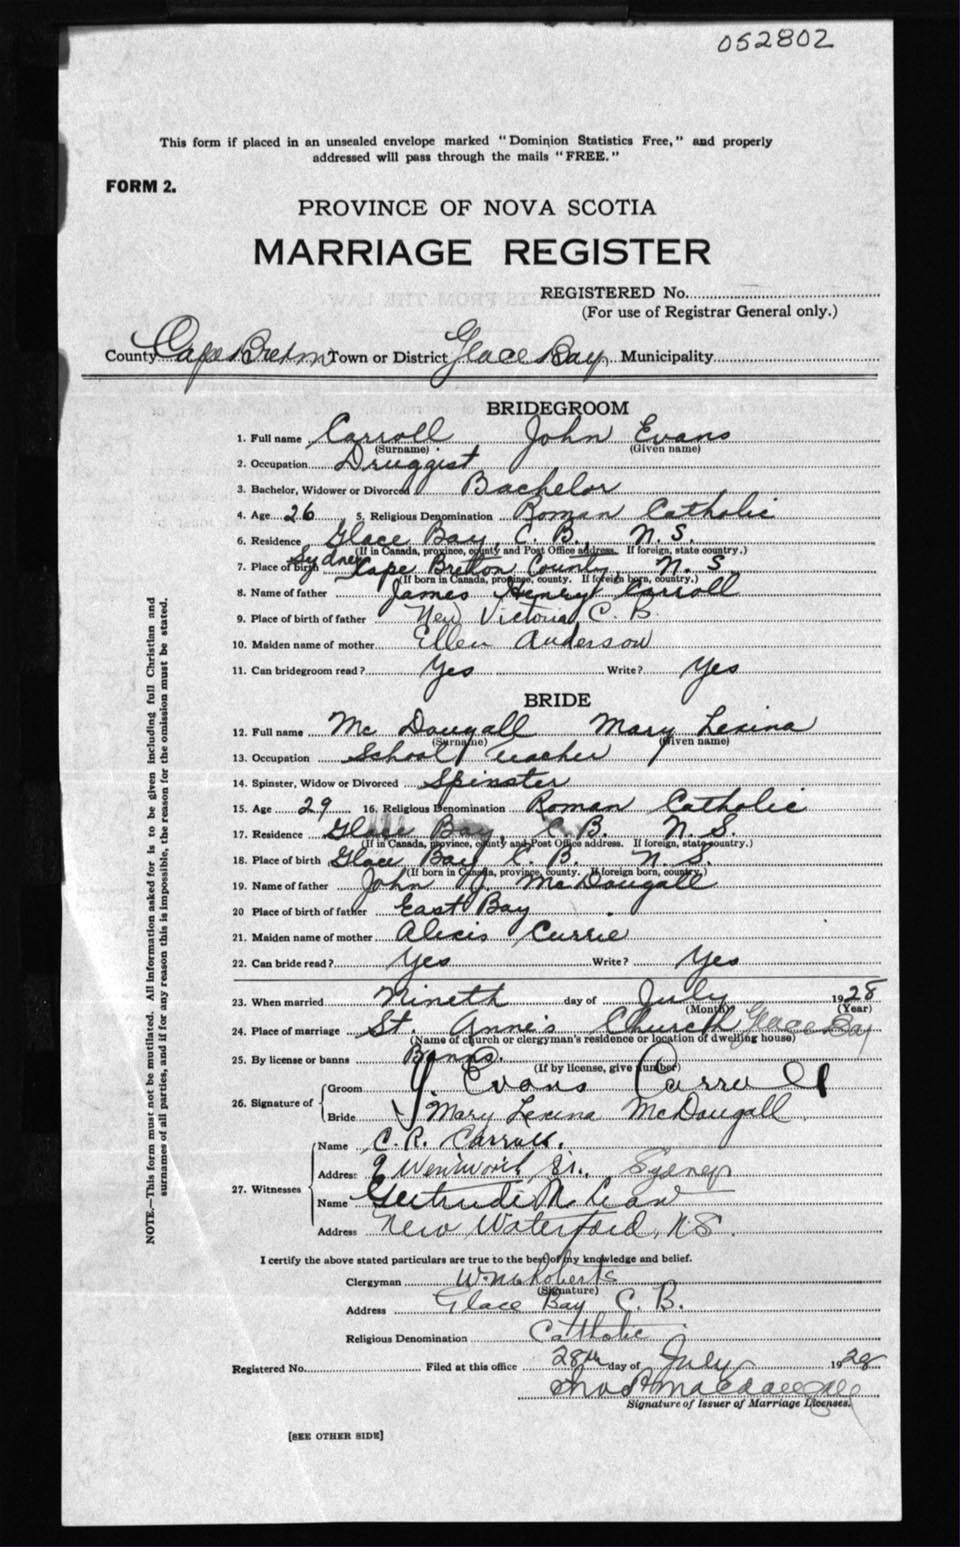 052802
This form if placed in an unsealed envelope marked "Dominion Statistics Free," and properly
addressed will pass through the mails "FREE."
FORM 2.
PROVINCE OF NOVA SCOTIA
MARRIAGE REGISTER
REGISTERED No.
(For use of Registrar General only.)
County Cape Breton Town or District Glace Bay Municipality
BRIDEGROOM
1. Full name Carroll John Evans
(Surname) (Given name)
2. Occupation Druggist
3. Bachelor, Widower or Divorced Bachelor
4. Age 26 5. Religious Denomination Roman Catholic
6. Residence Glace Bay, C. B., N. S.
(If in Canada, province, county and Post Office address. If foreign, state country.)
7. Place of birth Sydney Cape Breton County, N. S.
(If born in Canada, province, county. If foreign born, country.)
8. Name of father James Henry Carroll
9. Place of birth of father New Victoria, C. B.
10. Maiden name of mother Ellen Anderson
11. Can bridegroom read? Yes Write? Yes
BRIDE
12. Full name Mc Dougall Mary Lexina
(Surname) (Given name)
13. Occupation School Teacher
14. Spinster, Widow or Divorced Spinster
15. Age 29 16. Religious Denomination Roman Catholic
17. Residence Glace Bay, C. B. N. S.
(If in Canada, province, county and Post Office address. If foreign, state country.)
18. Place of birth Glace Bay C. B. N. S.
(If born in Canada, province, county. If foreign born, country.)
19. Name of father John J. McDougall
20 Place of birth of father East Bay
21. Maiden name of mother Alicis Currie
22. Can bride read? Yes Write? Yes
23. When married Nineth day of July 1928
(Month) (Year)
24. Place of marriage St. Anne's Church Glace Bay
(Name of church or clergyman's residence or location of dwelling house)
25. By license or banns Banns.
(If by license, give number)
26. Signature of Groom J. Evans Carroll
Bride Mary Lexina McDougall
27. Witnesses Name C. R. Carroll.
Address 9 Wentworth St., Sydney
Name Gertrude
Address New Waterford, N.S.
I certify the above stated particulars are true to the best of my knowledge and belief.
Clergyman Roberts
(Signature)
Address Glace Bay C. B.
Religious Denomination Catholic
Registered No. Filed at this office 28th day of July 1928
Signature of Issuer of Marriage Licenses.
[SEE OTHER SIDE]
NOTE.—This form must not be mutilated. All information asked for is to be given including full Christian and
surnames of all parties, and if for any reason this is impossible, the reason for the omission must be stated.